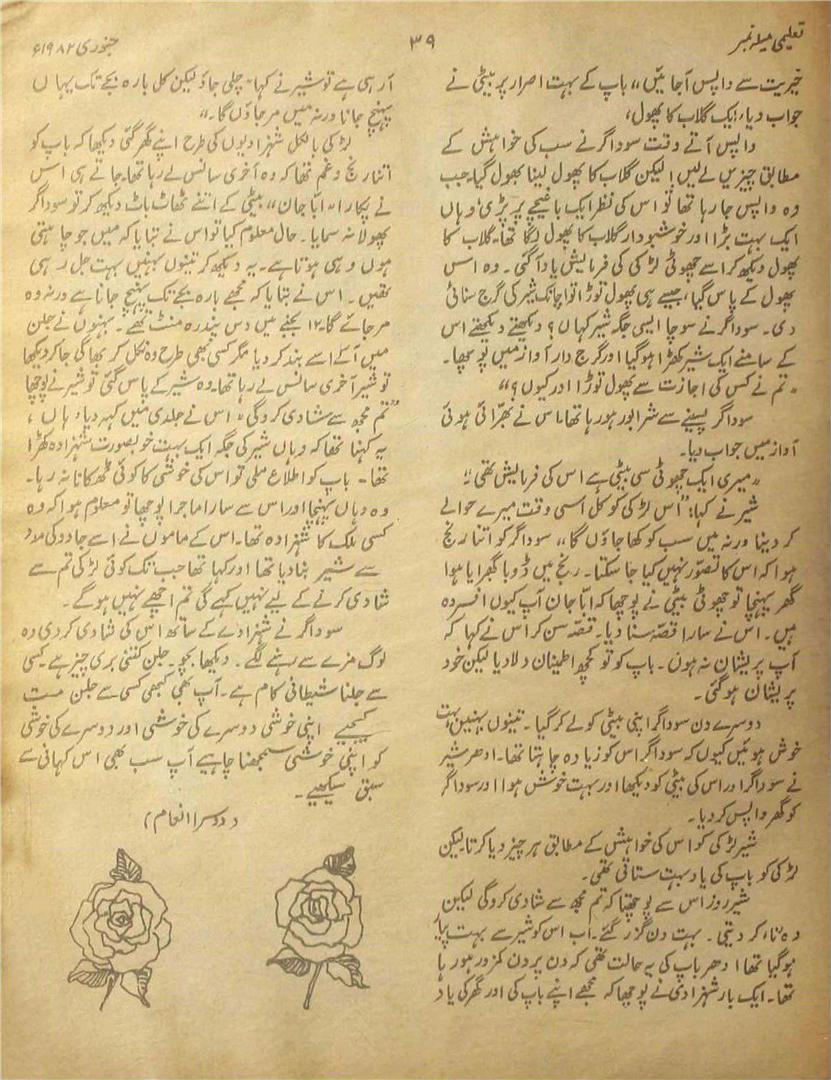 تعلیمی میلہ نمبر
۳۹
جنوری ۱۹۸۲ء
خیریت سے واپس آجائیں،، باپ کے بہت اصرار پر بیٹی نے
جواب دیا، ایک گلاب کا پھول،
واپس آتے وقت سوداگر نے سب کی خواہش کے
مطابق چیزیں لے لیں، لیکن گلاب کا پھول لینا بھول گیا۔ جب
وہ واپس جا رہا تھا تو اس کی نظر ایک باغیچے پر پڑی، وہاں
ایک بہت بڑا اور خوشبودار گلاب کا پھول لگا تھا۔ گلاب کا
پھول دیکھ کر اسے چھوٹی لڑکی کی فرمایش یاد آگئی۔ وہ اس
پھول کے پاس گیا، جیسے ہی پھول توڑا تو اچانک شیر کی گرج سنائی
دی۔ سوداگر نے سوچا ایسی جگہ شیر کہاں؟ دیکھتے دیکھتے اس
کے سامنے ایک شیر کھڑا ہو گیا اور گرج دار آواز میں پوچھا۔
"تم نے کس کی اجازت سے پھول توڑا اور کیوں؟"
سوداگر پسینے سے شرابور ہو رہا تھا، اس نے بھرّائی ہوئی
آواز میں جواب دیا۔
"میری ایک چھوٹی سی بیٹی ہے اس کی فرمایش تھی"
شیر نے کہا: "اس لڑکی کو کل اسی وقت میرے حوالے
کر دینا ورنہ میں سب کو کھا جاؤں گا،، سوداگر کو اتنا رنج
ہوا کہ اس کا تصوّر نہیں کیا جا سکتا۔ رنج میں ڈوبا گھبرایا ہوا
گھر پہنچا تو چھوٹی بیٹی نے پوچھا کہ ابّا جان آپ کیوں افسردہ
ہیں۔ اس نے سارا قصّہ سنا دیا۔ قصّہ سن کر اس نے کہا کہ
آپ پریشان نہ ہوں۔ باپ کو تو کچھ اطینان دلا دیا لیکن خود
پریشان ہو گئی۔
دوسرے دن سوداگر اپنی بیٹی کو لے کر گیا۔ تینوں بہنیں بہت
خوش ہوئیں کیوں کہ سوداگر اس کو زیادہ چاہتا تھا۔ ادھر شیر
نے سوداگر اور اس کی بیٹی کو دیکھا اور بہت خوش ہوا اور سوداگر
کو گھر واپس کر دیا۔
شیر لڑکی کو اس کی خواہش کے مطابق ہر چیز دیا کرتا لیکن
لڑکی کو باپ کی یاد بہت ستاتی تھی۔
شیر روز اس سے پوچھتا کہ تم مجھ سے شادی کرو گی لیکن
وہ مناء کر دیتی۔ بہت دن گزر گئے۔ اب اس کو شیر سے بہت پیار
ہو گیا تھا، ادھر باپ کی یہ حالت تھی کہ دن پر دن کمزور ہو رہا
تھا۔ ایک بار شہزادی نے پوچھا کہ مجھے اپنے باپ کی اور گھر کی یاد
آ رہی ہے تو شیر نے کہا "چلی جاؤ لیکن کل بارہ بجے تک یہاں
پہنچ جانا ورنہ میں مر جاؤں گا۔"
لڑکی بالکل شہزادیوں کی طرح اپنے گھر گئی دیکھا کہ باپ کو
اتنا رنج و غم تھا کہ وہ آخری سانس لے رہا تھا۔ جاتے ہی اس
نے پکارا "ابّا جان،، بیٹی کے اتنے ٹھاٹ باٹ دیکھ کر تو سوداگر
پھولا نہ سمایا۔ حال معلوم کیا تو اس نے بتایا کہ میں جو چاہتی
ہوں وہی ہوتا ہے۔ یہ دیکھ کر تینوں بہنیں بہت جل رہی
تھیں۔ اس نے بتایا کہ مجھے بارہ بجے تک پہنچ جانا ہے ورنہ وہ
مر جائے گا۔ ۱۲ بجنے میں دس پندرہ منٹ تھے۔ بہنوں نے جلن
میں آ کے اسے بند کر دیا مگر کسی بھی طرح وہ نکل کر بھاگی جا کر دیکھا
تو شیر آخری سانس لے رہا تھا۔ وہ شیر کے پاس گئی تو شیر نے پوچھا
"تم مجھ سے شادی کرو گی" اس نے جلدی میں کہہ دیا، ہاں،
یہ کہنا تھا کہ وہاں شیر کی جگہ ایک بہت خوبصورت شہزادہ کھڑا
تھا۔ باپ کو اطلاع ملی تو اس کی خوشی کا کوئی ٹھکانا نہ رہا۔
وہ وہاں پہنچا اور اس سے سارا ماجرا پوچھا تو معلوم ہوا کہ وہ
کسی ملک کا شہزادہ تھا۔ اس کے ماموں نے اسے جادو کی مدد
سے شیر بنا دیا تھا اور کہا تھا جب تک کوئی لڑکی تم سے
شادی کرنے کے لیے نہیں کہے گی تم اچھے نہیں ہو گے۔
سوداگر نے شہزادے کے ساتھ اس کی شادی کر دی وہ
لوگ مزے سے رہنے لگے۔ دیکھا بچو۔ جلن کتنی بری چیز ہے کسی
سے جلنا شیطانی کام ہے۔ آپ بھی کبھی کسی سے جلن مت
کیجیے اپنی خوشی دوسرے کی خوشی اور دوسرے کی خوشی
کو اپنی خوشی سمجھنا چاہیے آپ سب بھی اس کہانی سے
سبق سیکھیے۔
(دوسرا انعام)